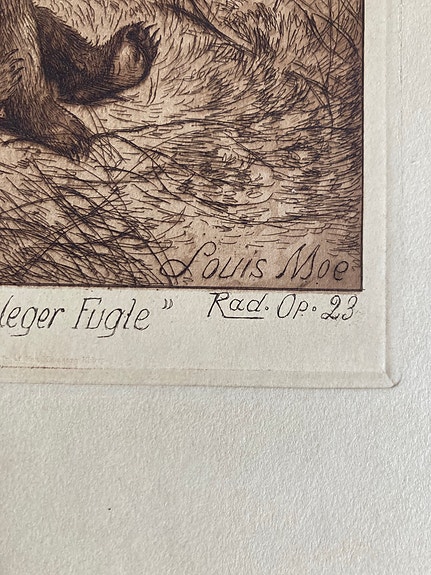 Louis Moe
leger Fugle" Rad. Op. 23